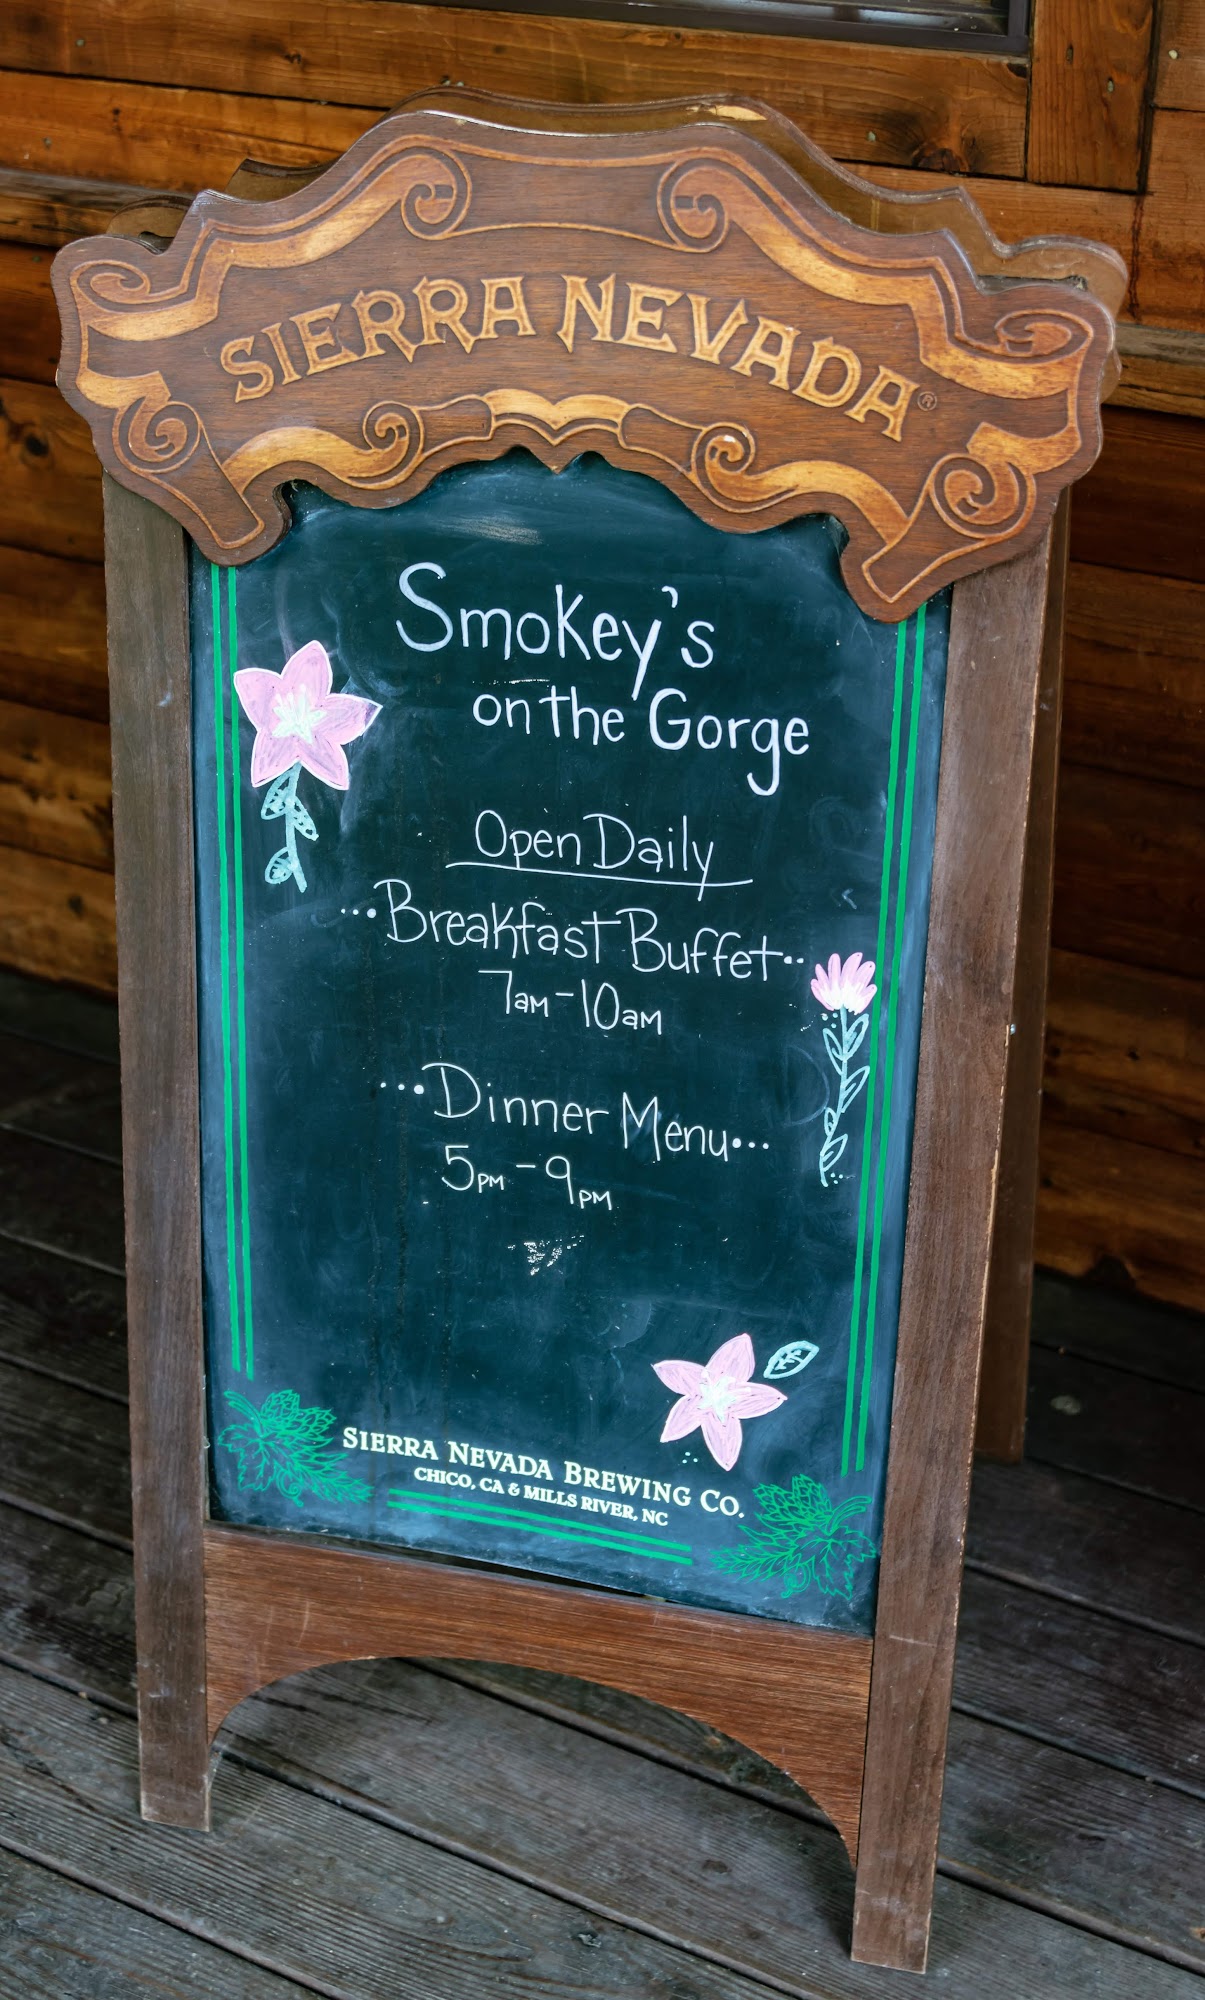 SIERRA NEVADA®
Smokey's
on the Gorge
Open Daily
...Breakfast Buffet..
7am-10am
...Dinner Menu...
5pm-9pm
SIERRA NEVADA BREWING CO.
CHICO, CA & MILLS RIVER, NC